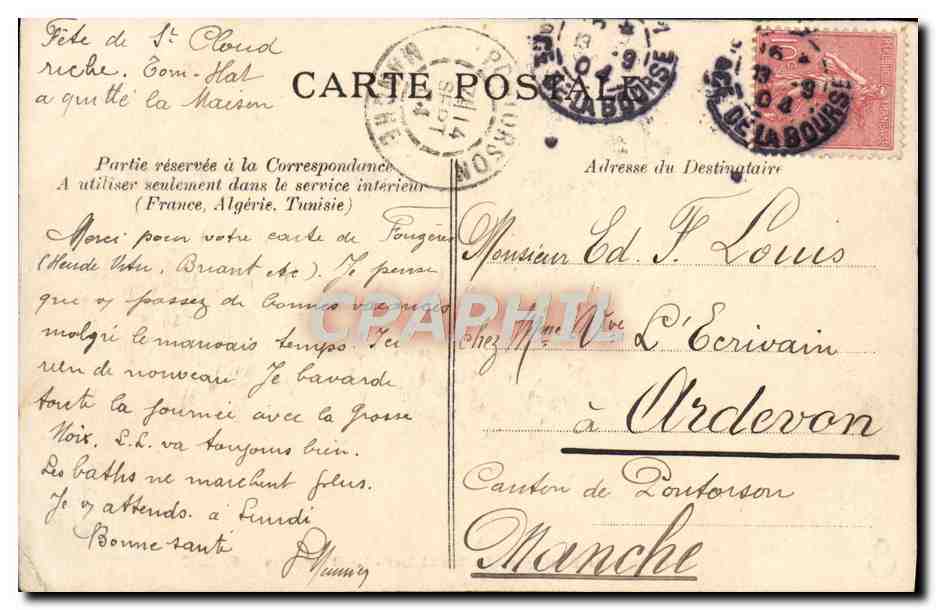 Fête de St Cloud
riche. Tom-Hat
a quitté la Maison
CARTE POSTALE
PONTORSON
MANCHE
14
SEPT
04
PCE DE LA BOURSE
13 -9
04
PCE DE LA BOURSE
13 -9
04
Partie réservée à la Correspondance
A utiliser seulement dans le service intérieur
(France, Algérie, Tunisie)
Adresse du Destinataire
Merci pour votre carte de Fougères
(Briant etc). Je pense
que vs passez de bonnes vacances
malgré le mauvais temps. Ici
rien de nouveau Je bavarde
toute la journée avec la Grosse
Noix. L.L. va toujours bien.
Les baths ne marchent plus.
Je vs attends à Lundi
Bonne santé
Monsieur Ed. F. Louis
chez Mme Vve L'Ecrivain
à Ardevon
Canton de Pontorson
Manche
CPAPHIL